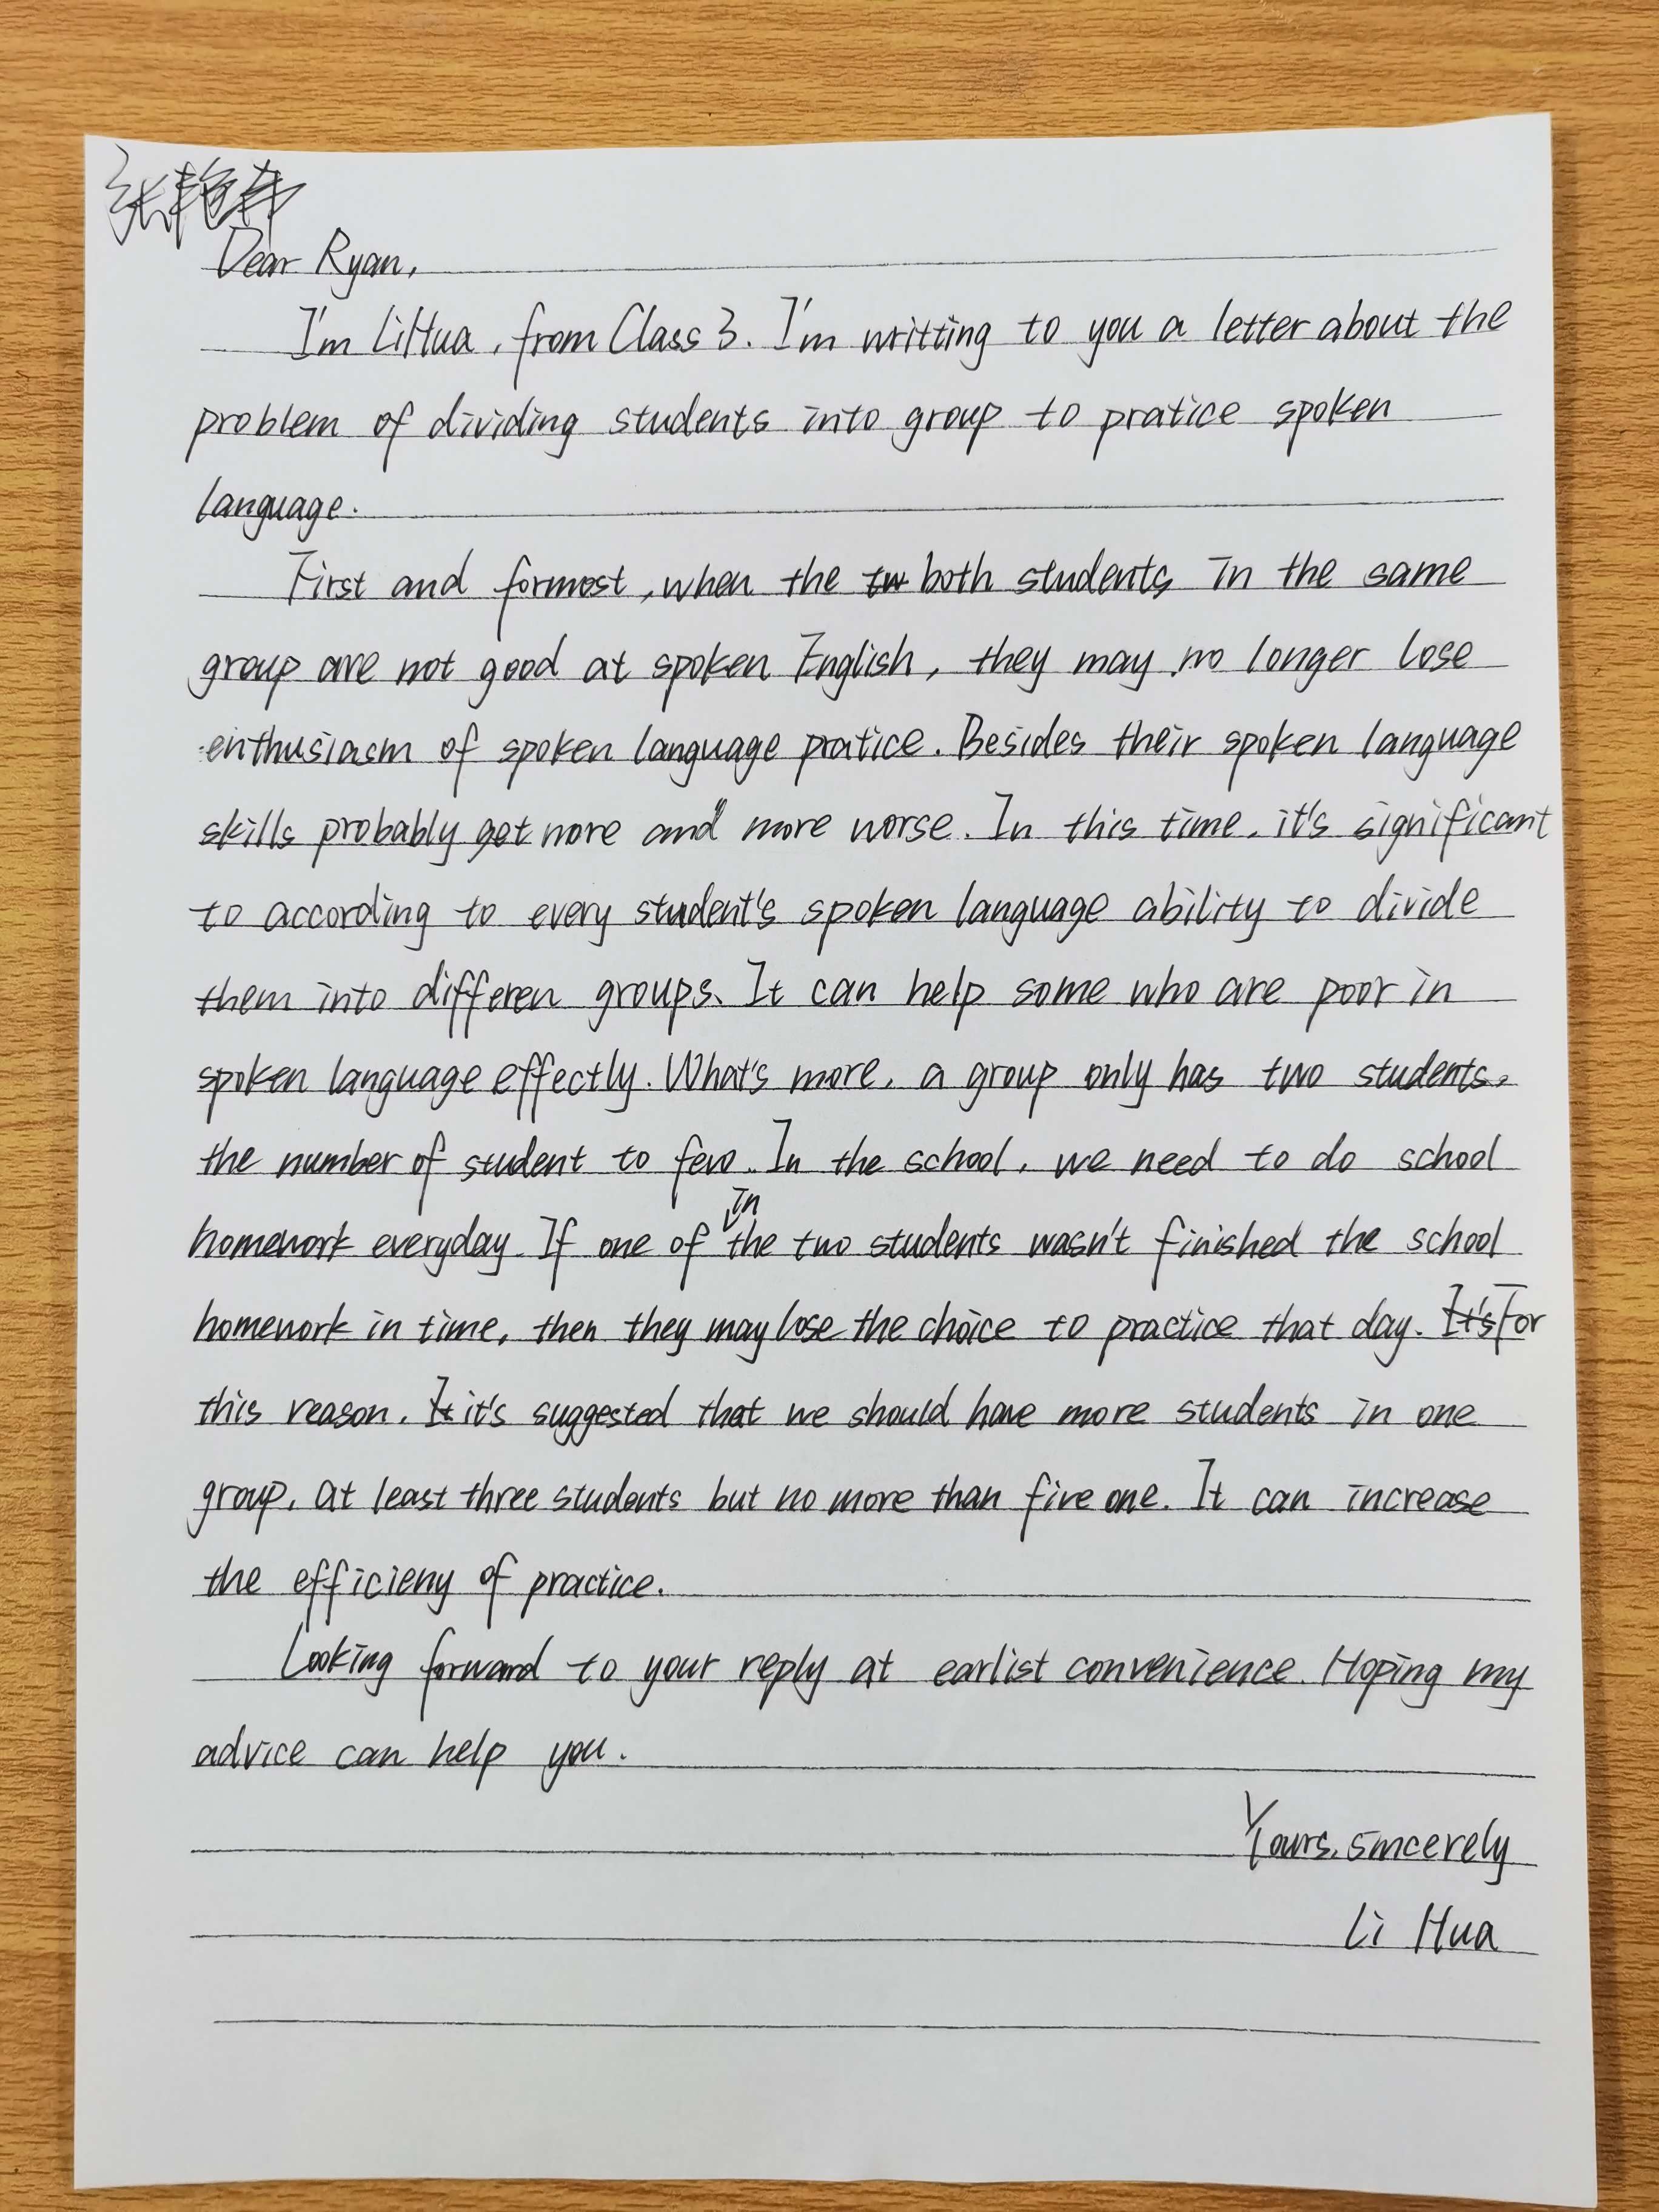 张艳
Dear Ryan,
I'm LiHua, from Class 3. I'm writting to you a letter about the
problem of dividing students into group to pratice spoken
language.
First and formost, when the both students in the same
group are not good at spoken English, they may no longer lose
enthusiasm of spoken language pratice. Besides their spoken language
skills probably get more and more worse. In this time, it's significant
to according to every student's spoken language ability to divide
them into differen groups. It can help some who are poor in
spoken language effectly. What's more, a group only has two students,
the number of student to few. In the school, we need to do school
homework everyday. If one of in the two students wasn't finished the school
homework in time, then they may lose the choice to practice that day. For
this reason, it's suggested that we should have more students in one
group, at least three students but no more than five one. It can increase
the efficieny of practice.
Looking forward to your reply at earlist convenience. Hoping my
advice can help you.
Yours, sincerely
Li Hua